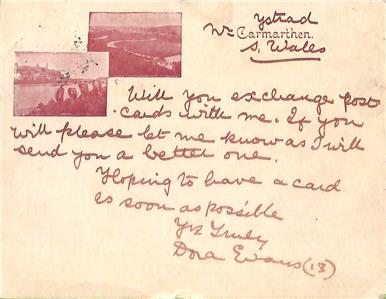 Ystrad
Nr Carmarthen.
S. Wales
Will you exchange post
cards with me. If you
will please let me know as I will
send you a better one.
Hoping to have a card
as soon as possible
Yrs Truly
Dora Evans (13)